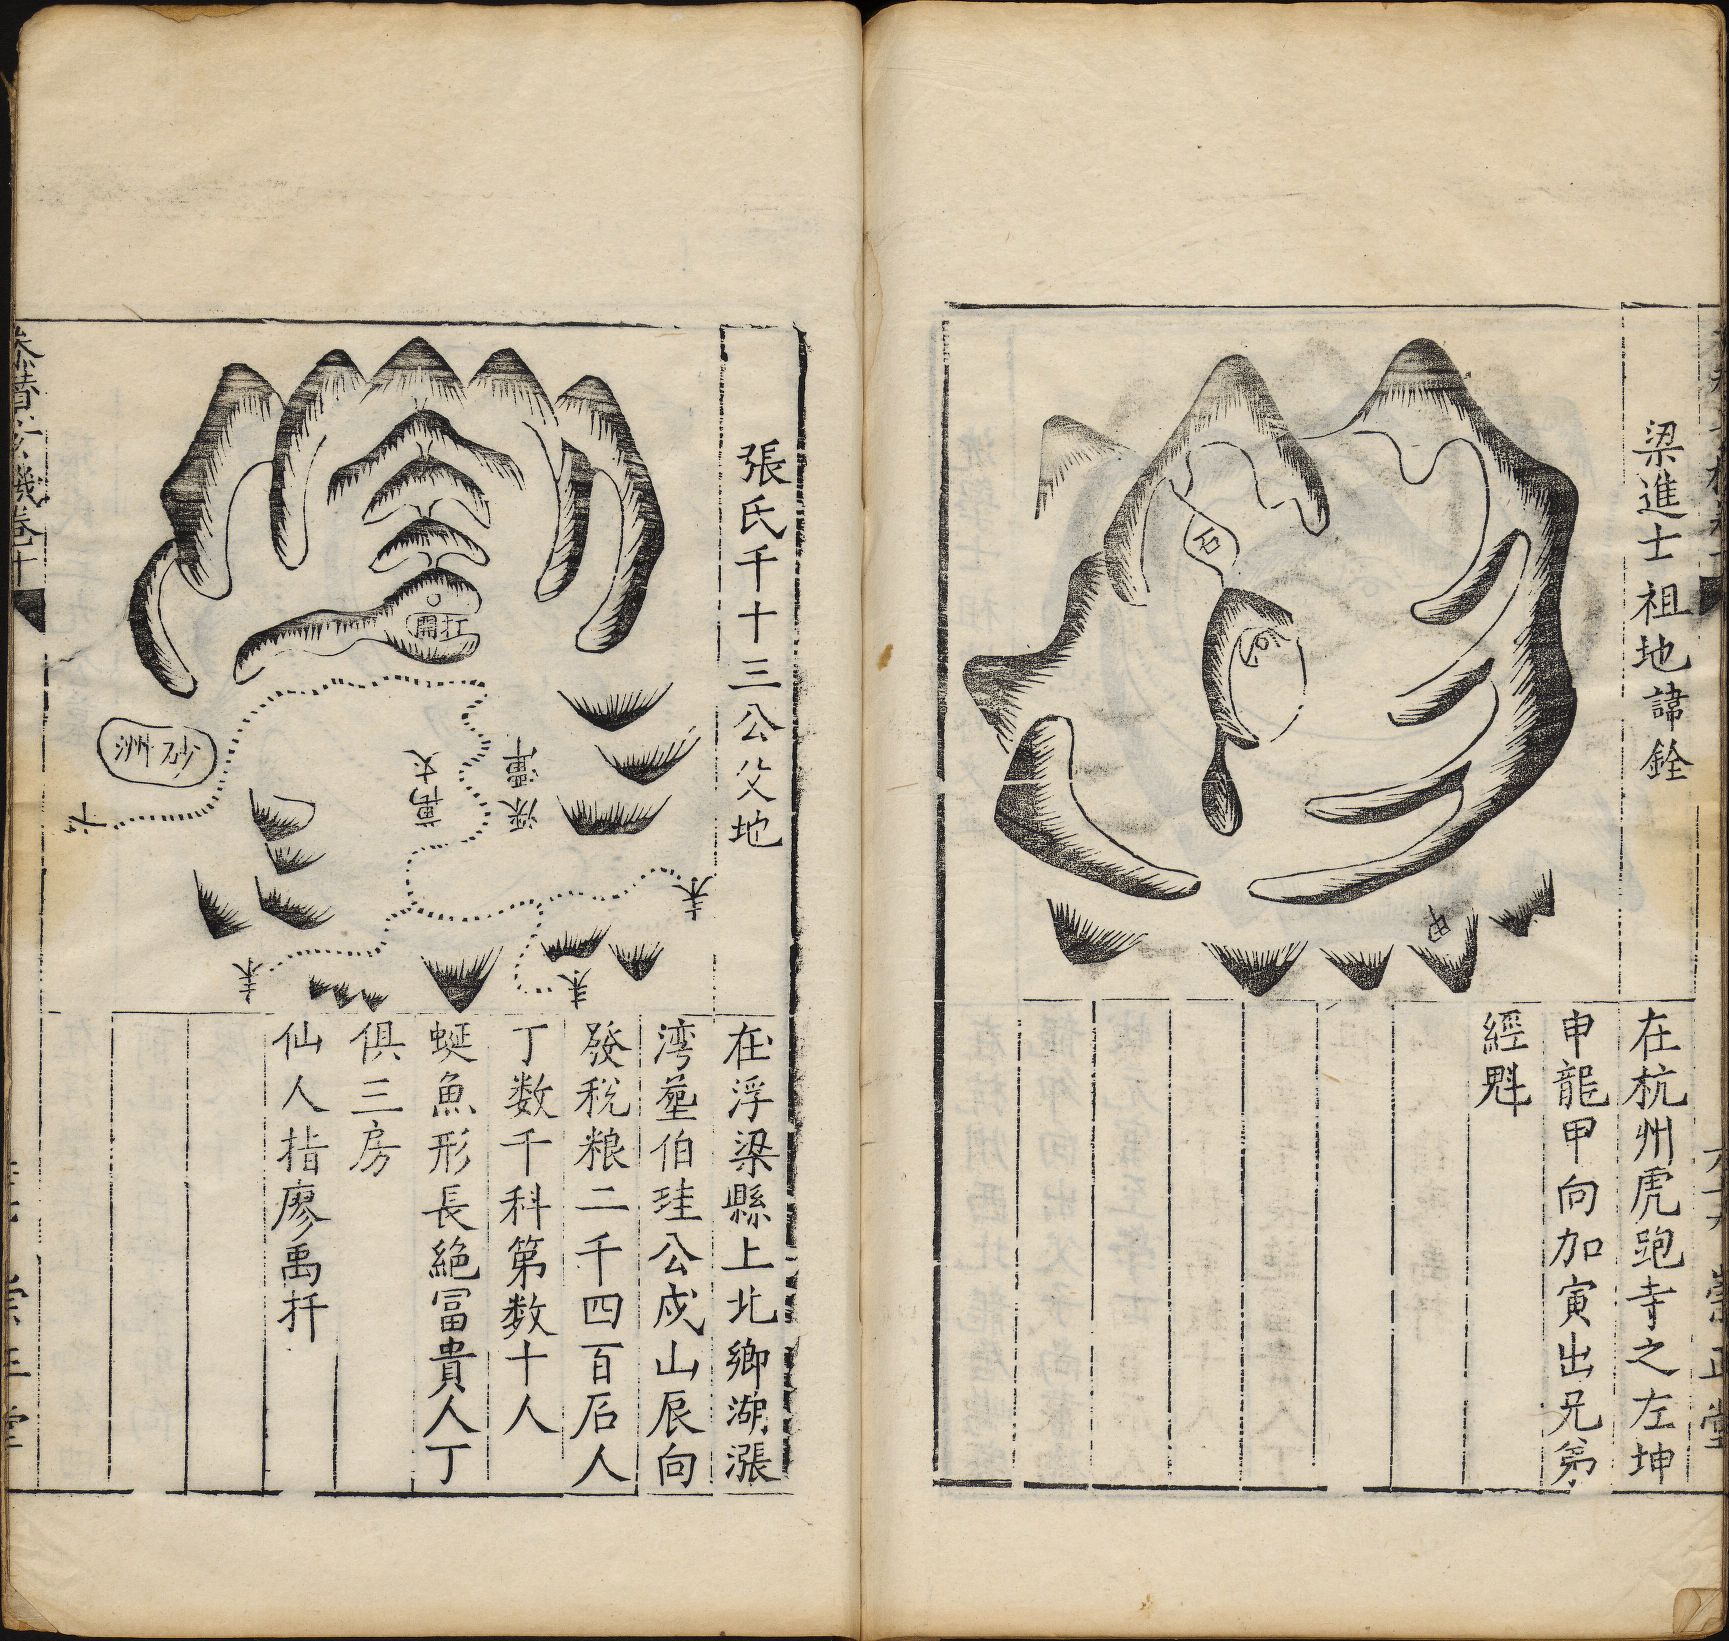 梁進士祖地諱銓
石
甲
在杭州虎跑寺之左坤
申龍甲向加寅出兄弟
經魁
張氏千十三公父地
開扛
砂洲
萬丈
深潭
未
未
未
在浮梁縣上北鄉湖漲
湾塟伯珪公戍山辰向
發稅粮二千四百石人
丁数千科第数十人
蜒魚形長絶冨貴人丁
俱三房
仙人指廖禹扦